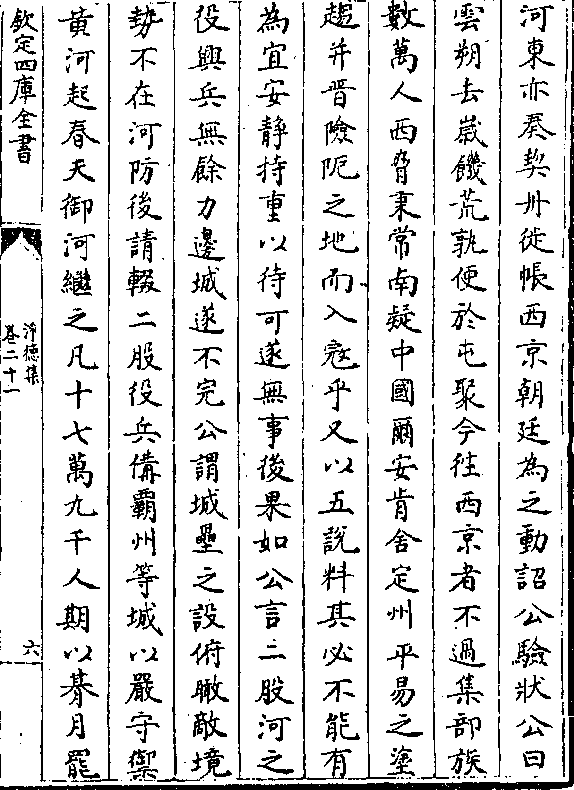 河東亦奏契丹徙帳西京朝廷為之動詔公驗狀公曰
雲朔去嵗饑荒孰便於屯聚今徃西京者不過集部族
數萬人西脅秉常南疑中國爾安肯舎定州平易之塗
趨井晉險阨之地而入寇乎又以五說料其必不能有
為宜安靜持重以待可遂無事後果如公言二股河之
役興兵無餘力邊城遂不完公謂城壘之設俯瞰敵境
勢不在河防後請輟二股役兵備霸州等城以嚴守禦
黃河起春夫御河繼之凡十七萬九千人期以朞月罷
欽定四庫全書
淨德集
卷二十一
六